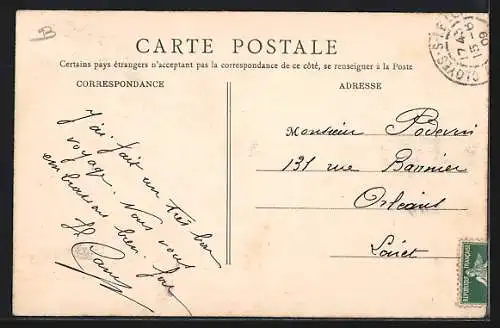 CARTE POSTALE
Certains pays étrangers n'acceptant pas la correspondance de ce côté, se renseigner à la Poste
CORRESPONDANCE
ADRESSE
J'ai fait un très bon
voyage. Nous vous
embrassons bien.
Monsieur Podevin
131 rue Bannier
Orléans
Loiret
CLOYES-S-LE-L
17 45
15-6
09
REPUBLIQUE FRANÇAISE